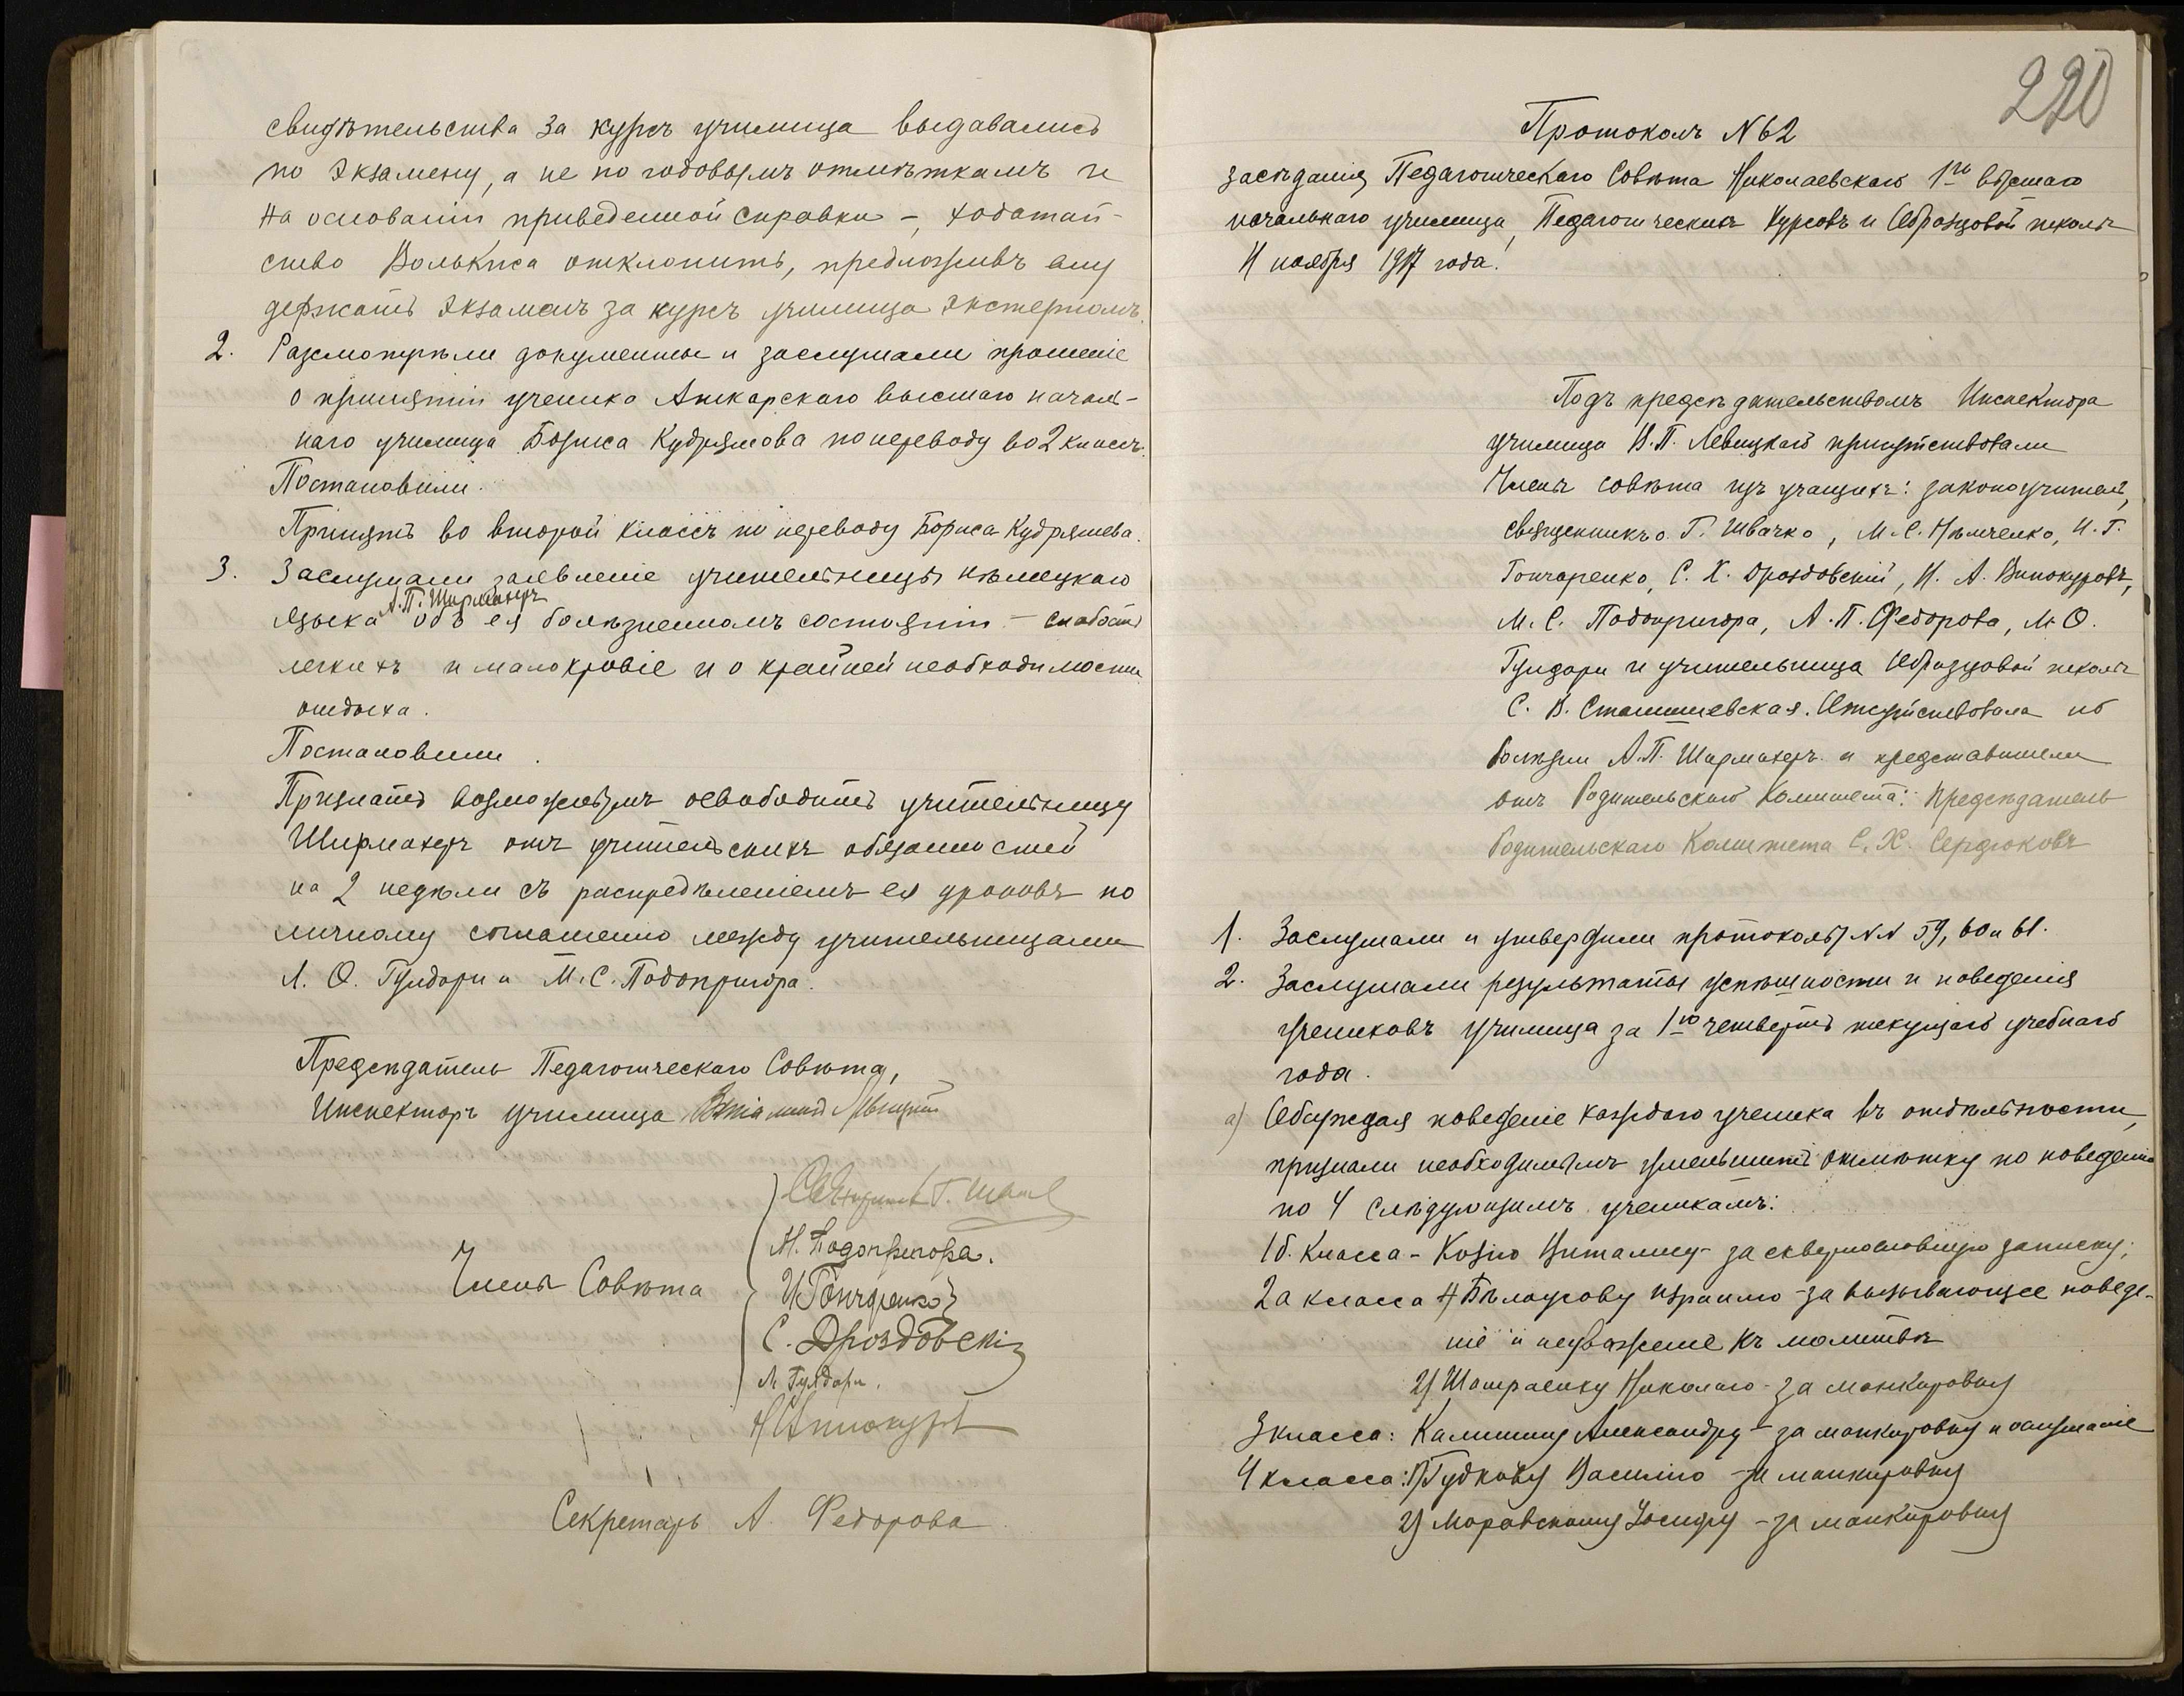 свидѣтельства за курсъ училища выдавались
по экзамену, а не по годовымъ отмѣткамъ и
на основаніи приведенной справки –, ходатай-
ство Волькиса отклонить, предложивъ ему
держать экзаменъ за курсъ училища экстерномъ.
2. Разсмотрѣли документы и заслушали прошеніе
о принятіи ученика Аткарскаго высшаго началь-
наго училища Бориса Кудряшова по переводу во 2 классъ.
Постановили.
Принять во второй классъ по переводу Бориса Кудряшева.
3. Заслушали заявленіе учительницы нѣмецкаго
А.П. Ширмахеръ
языка объ ея болѣзненномъ состояніи – слабость
легкихъ и малокровіе и о крайней необходимости
отдыха.
Постановили.
Признать возможнымъ освободить учительницу
Ширмахеръ отъ учительскихъ обязанностей
на 2 недѣли съ распредѣленіемъ ея уроковъ по
личному соглашенію между учительницами
Л. О. Гулдари и М. С. Подопригора.
Предсѣдатель Педагогическаго Совѣта,
Инспекторъ училища
Г.
М. Подопригора.
Члены Совѣта
И Гончаренко
С. Дроздовскій
Л. Гулдари.
Секретарь А. Федорова
220
Протоколъ N 62
засѣданія Педагогическаго Совѣта Николаевскаго 1го высшаго
начальнаго училища, Педагогическихъ Курсовъ и Образцовой школы
11 ноября 1917 года.
Подъ предсѣдательствомъ Инспектора
училища В. П. Левицкаго присутствовали
Члены совѣта изъ учащихъ: законоучитель,
священникъ о. Г. Швачко, М. С. Нѣмченко, И. Г.
Гончаренко, С. Х. Дроздовскій, И. А. Винокуровъ,
М. С. Подопригора, А. П. Федорова, Л. О.
Гулдари и учительница Образцовой школы
С. В. Отсутствовала по
болѣзни А. П. Ширмахеръ и представители
отъ Родительскаго Комитета: предсѣдатель
Родительскаго Комитета С. Х. Сердюковъ
1. Заслушали и утвердили протоколы NN 59, 60 и 61.
2. Заслушали результаты успѣшности и поведенія
учениковъ училища за 1ю четверть текущаго учебнаго
года.
а) Обсуждая поведеніе каждаго ученика въ отдѣльности,
признали необходимымъ уменьшить отмѣтку по поведенію
по 4 слѣдующимъ ученикамъ:
1б. класса – Виталію – за сквернословную записку;
2а класса 1) Бѣлоусову Израилю – за вызывающее поведе-
ніе и неуваженіе къ молитвѣ
2) Николаю – за манкировку
3 класса: Калинину Александру – за манкировку и ослушаніе
4 класса: 1) Гудкову Василію – за манкировку
2) Моравскому Іосифу – за манкировку